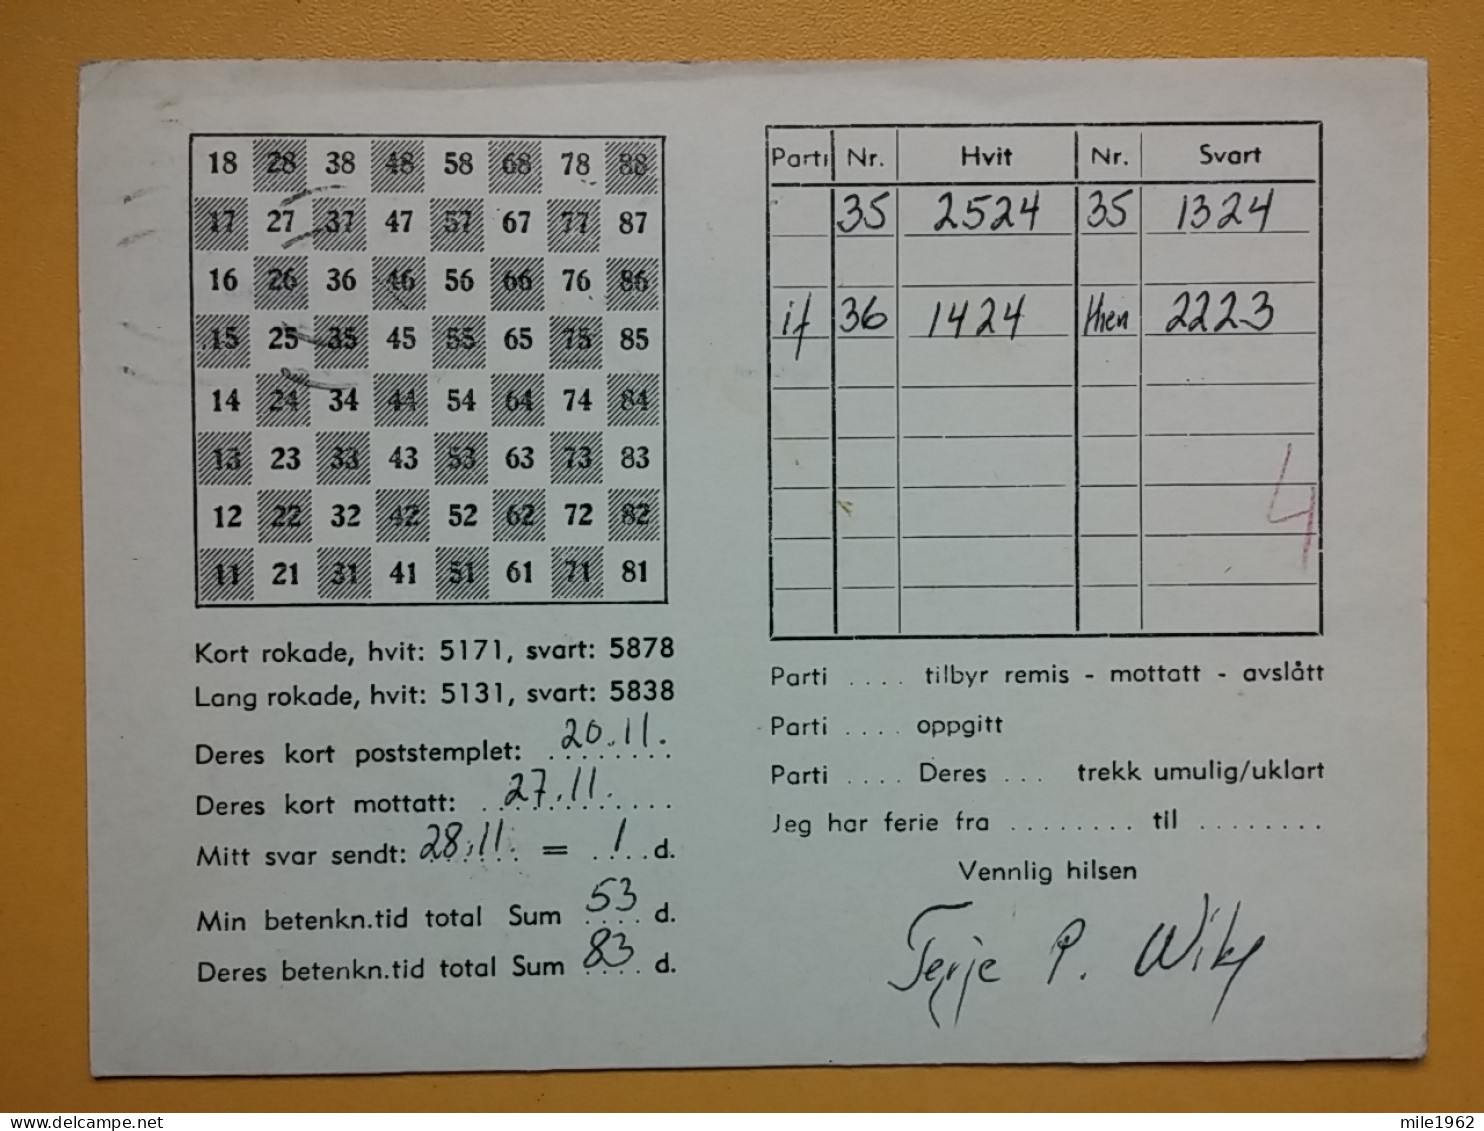 18 28 38 48 58 68 78 88
17 27 37 47 57 67 77 87
16 26 36 46 56 66 76 86
15 25 35 45 55 65 75 85
14 24 34 44 54 64 74 84
13 23 33 43 53 63 73 83
12 22 32 42 52 62 72 82
11 21 31 41 51 61 71 81
Kort rokade, hvit: 5171, svart: 5878
Lang rokade, hvit: 5131, svart: 5838
Deres kort poststemplet: 20.11.
Deres kort mottatt: 27.11.
Mitt svar sendt: 28.11. = 1 d.
Min betenkn.tid total Sum 53 d.
Deres betenkn.tid total Sum 83 d.
Parti Nr. Hvit Nr. Svart
35 2524 35 1324
if 36 1424 then 2223
4
Parti .... tilbyr remis - mottatt - avslått
Parti .... oppgitt
Parti .... Deres ... trekk umulig/uklart
Jeg har ferie fra ........ til ........
Vennlig hilsen
Terje P. Wik
mile1962